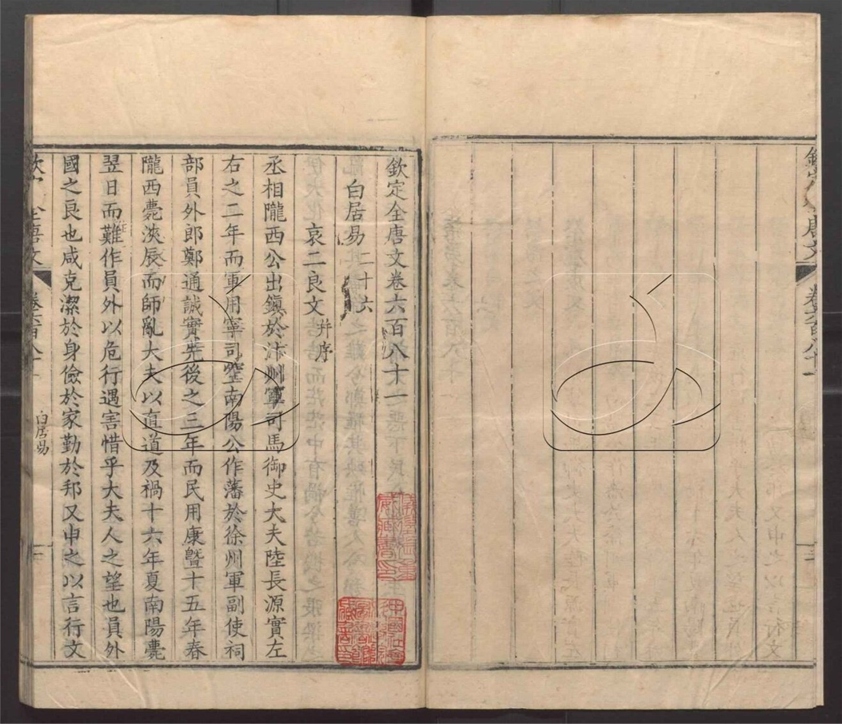 欽定全唐文卷六百八十一
白居易二十六
哀二良文幷序
丞相隴西公出鎮於汴州軍司馬御史大夫陸長源實左
右之二年而軍用寧司空南陽公作藩於徐州軍副使祠
部員外郎鄭通誠實先後之三年而民用康暨十五年春
隴西薨浹辰而師亂大夫以直道及禍十六年夏南陽薨
翌日而難作員外以危行遇害惜乎大夫人之望也員外
國之良也咸克潔於身儉於家勤於邦又申之以言行文
全唐文
白居易